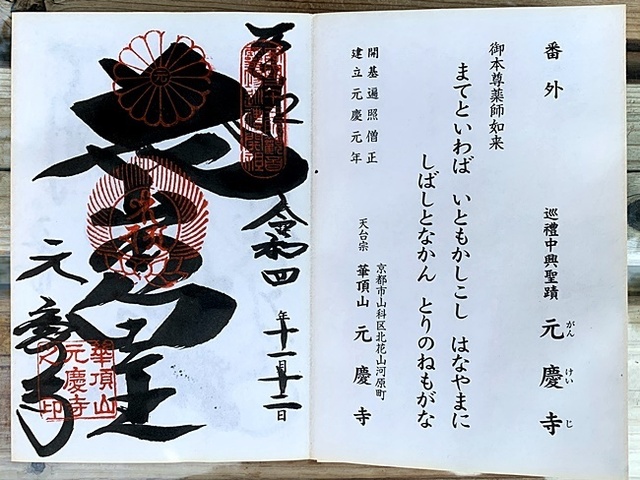 番外
巡禮中興聖蹟 元慶寺
がんけいじ
御本尊薬師如来
まてといわば いともかしこし はなやまに
しばしとなかん とりのねもがな
開基遍照僧正
建立元慶元年
京都市山科区北花山河原町
天台宗 華頂山 元慶寺
令和四年十一月十二日
元慶寺
華頂山
元慶寺
之印